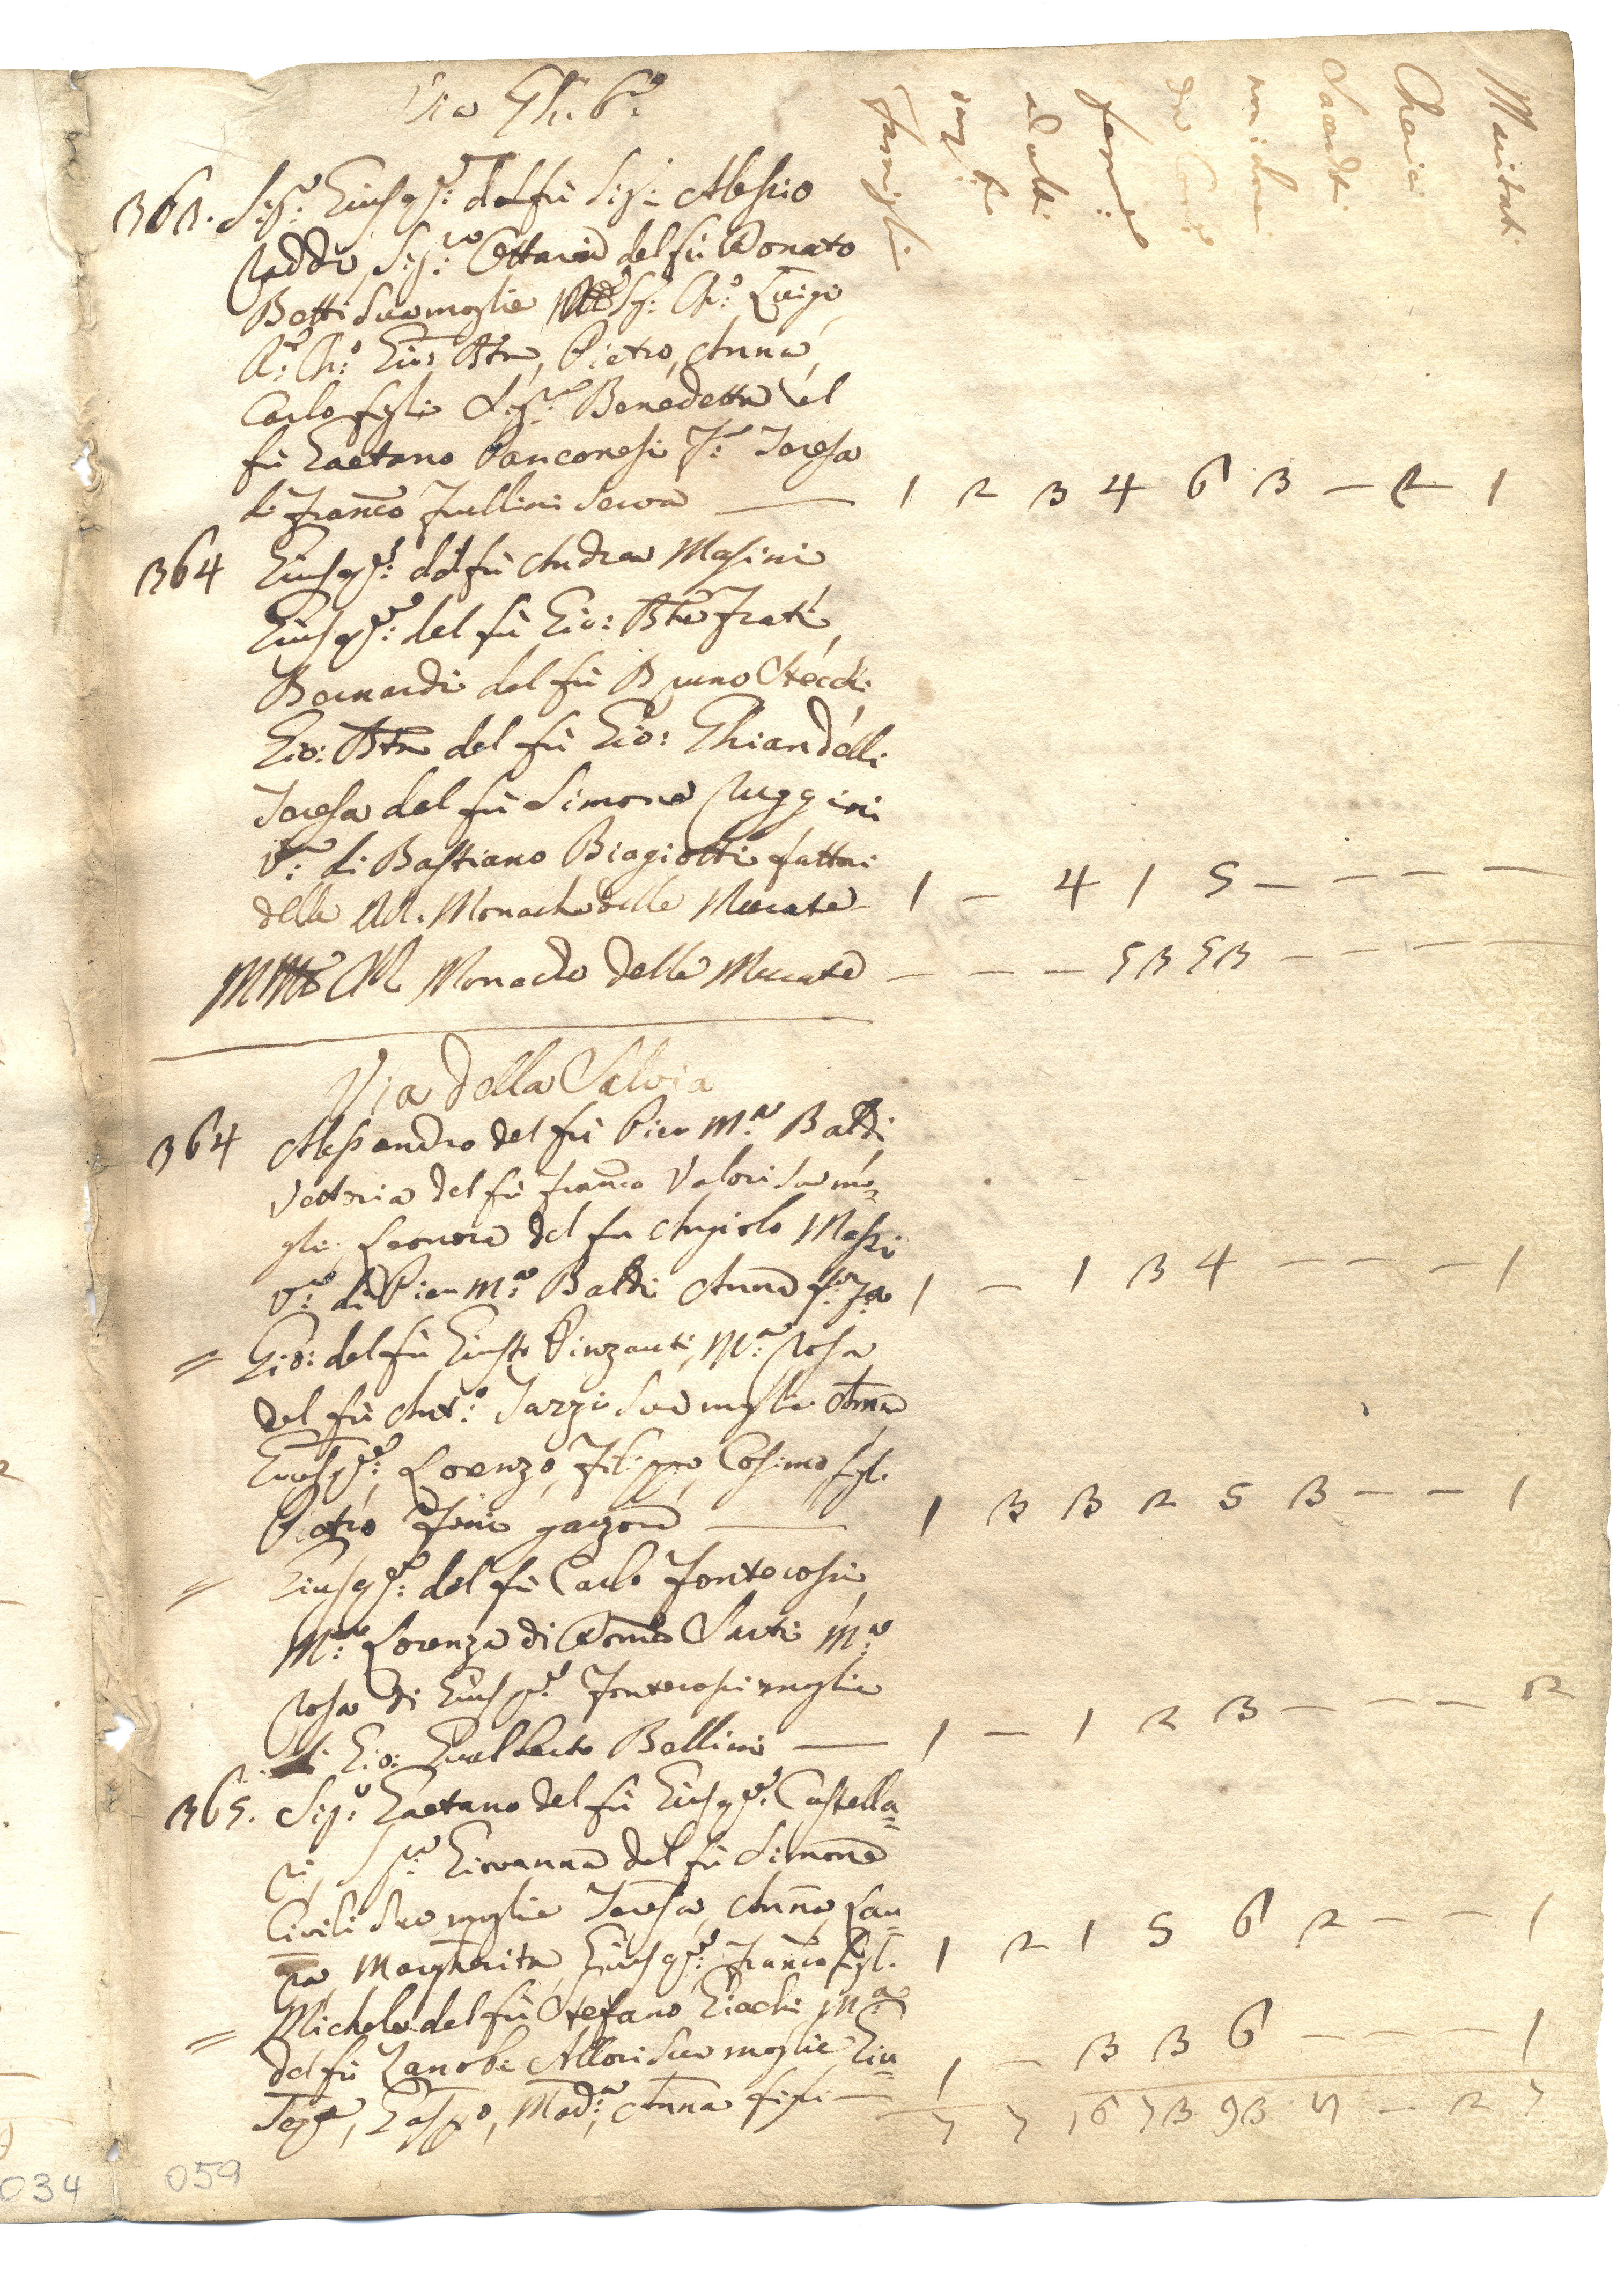 Via Gh.
Famiglie
maschi
adulti
femine
da Com.e
non da Com.
Sacerdoti
Cherici
Maritati
363. Sig.e Gius.pe del fù Sig. Alessio
Raddi, Sig.ra Ottavia del fù Donato
Betti sua moglie Sig. Ch.o Luigi,
Ch.o Gio: Btta, Pietro, Anna,
Carlo figli Sig.ra Benedetta del
fù Gaetano Panconesi Teresa
di Franco Frullini serva — 1 2 3 4 6 3 — 2 1
364 Gius.pe del fù Andrea Masini
Gius.pe del fù Gio: Btta Frati,
Bernardi del fù Bruno Stecchi
Gio: Btta del fù Gio: Ghiandelli
Teresa del fù Simone Ruggini
V.a di Bastiano Biagiotti fattori
delle MM. Monache delle Murate 1 — 4 1 5 — — — —
MM Monache delle Murate — — — 53 53 — — — —
Via della Salvia
364 Alessandro del fù Pier M.a Baldi
Vettoria del fù Franco Valori sua mo=
glie Leonora del fu Angiolo Massi
V.a di Pier M.a Baldi Anna f.a 1 — 1 3 4 — — — 1
= Gio: del fù Giusto Pinzauti, M.a Rosa
del fù Ant.o Sazzi sua moglie Anna
Gius.pe, Lorenzo, Filippo, Cosimo figl.
Pietro Fini garzone — 1 3 3 2 5 3 — — 1
= Gius.pe del fù Carlo Fontecosi
M.a Lorenza di Dom.co Sarti M.a
Rosa di Gius.pe Fontecosi moglie
di Gio: Gualberto Bellini — 1 — 1 2 3 — — — 2
365. Sig.e Gaetano del fù Gius.pe Castella=
ri, S.ra Giovanna del fù Simone
Civili sua moglie Teresa, Anna, Lau=
ra, Margherita, Gius.pe, Franco figl. 1 2 1 5 6 2 — — 1
= Michele del fù Stefano Giachi M.a
del fù Zanobi Allori sua moglie Giu=
seppe, Gasp.o, Mad.a, Anna figli — 1 — 3 3 6 — — — 1
7 7 16 73 93 — 2 7
034 059